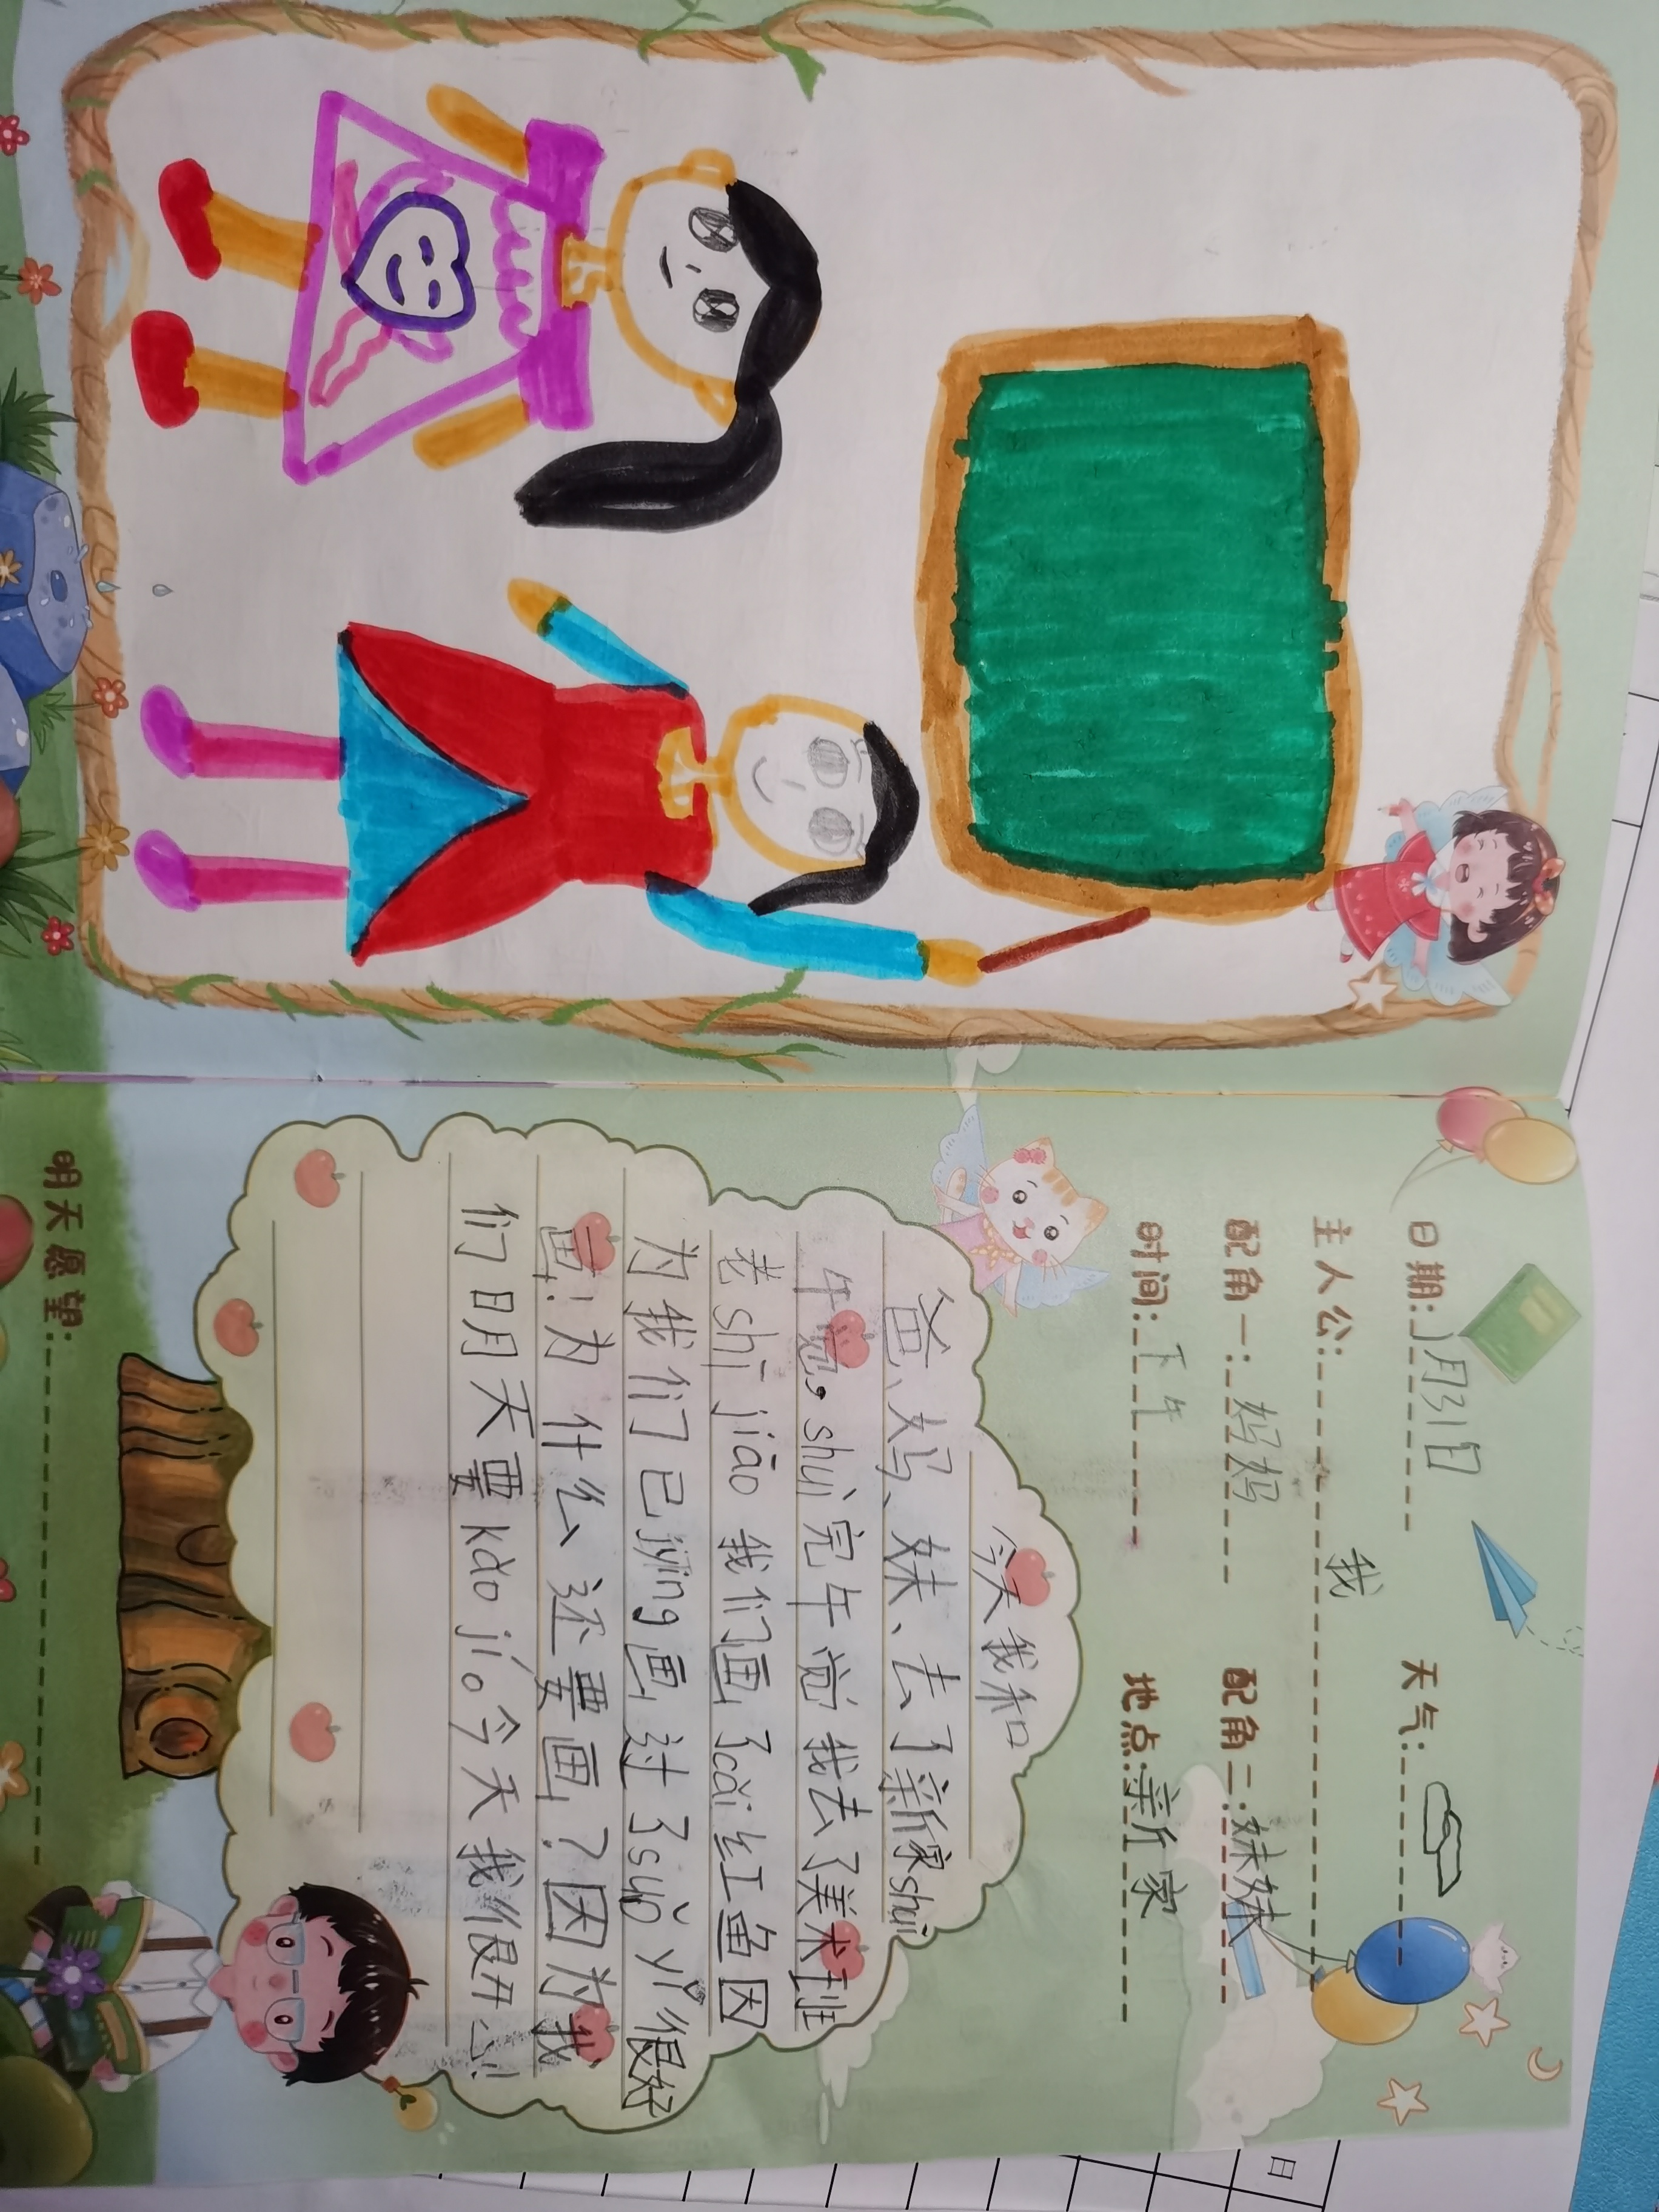 日期:1月31日 天气:
主人公: 我
配角一: 妈妈 配角二: 妹妹
时间: 下午 地点: 新家
今天我和
爸、妈、妹、去了新家shuì
午觉。shuì完午觉我去了美术班
老shī jiāo 我们画了cǎi红鱼因
为我们已jīng画过了suǒ yǐ很好
画!为什么还要画?因为我
们明天要kǎo jí。今天我很开心!
明天愿望:
日